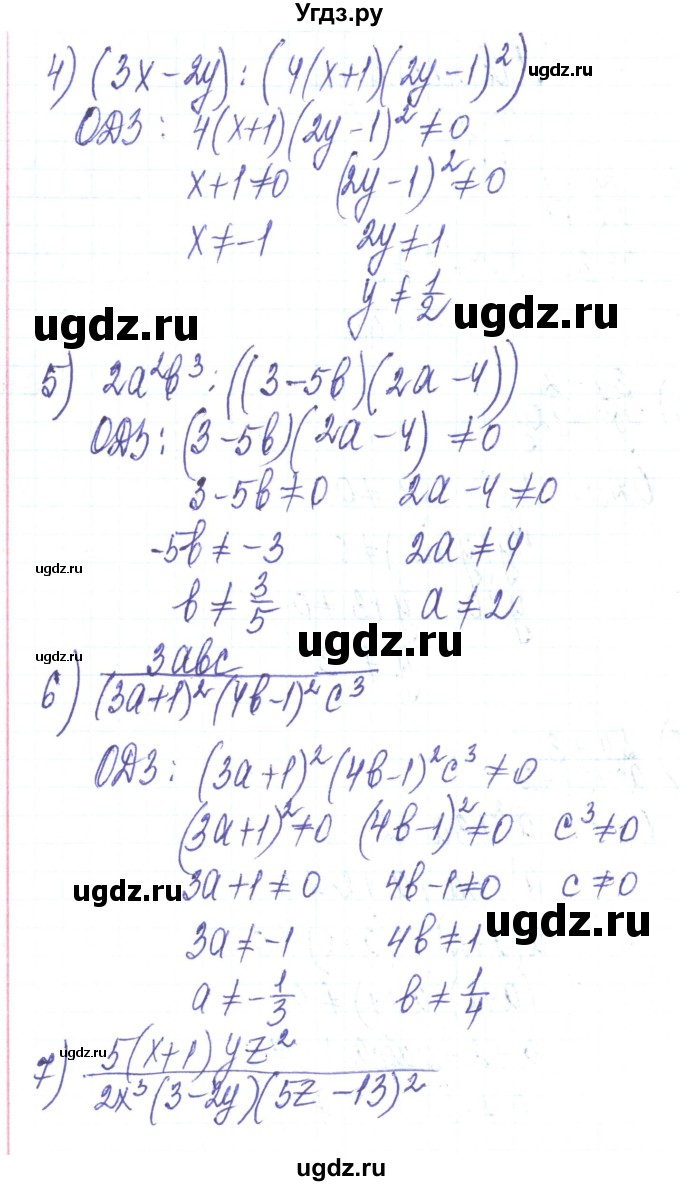 Угдз.ру
4) (3x - 2y) : (4(x+1)(2y-1)²)
ugdz.ru
ОДЗ: 4(x+1)(2y-1)² ≠ 0
x+1≠0 (2y-1)² ≠ 0
x ≠ -1 2y ≠ 1
y ≠ 1/2
ugdz.ru ugdz.ru
5) 2a²b³ : ((3-5b)(2a-4))
ОДЗ: (3-5b)(2a-4) ≠ 0
3-5b≠0 2a-4≠0
-5b ≠ -3 2a ≠ 4
ugdz.ru
b ≠ 3/5 a ≠ 2
ugdz.ru
ugdz.ru
6) 3abc / (3a+1)² (4b-1)² c³
ОДЗ: (3a+1)² (4b-1)² c³ ≠ 0
(3a+1)² ≠ 0 (4b-1)² ≠ 0 c³ ≠ 0
ugdz.ru
3a+1 ≠ 0 4b-1≠0 c ≠ 0
ugdz.ru
3a ≠ -1 4b ≠ 1
a ≠ -1/3 b ≠ 1/4
ugdz.ru
7) 5(x+1)yz² / 2x³(3-2y)(5z-13)²
ugdz.ru